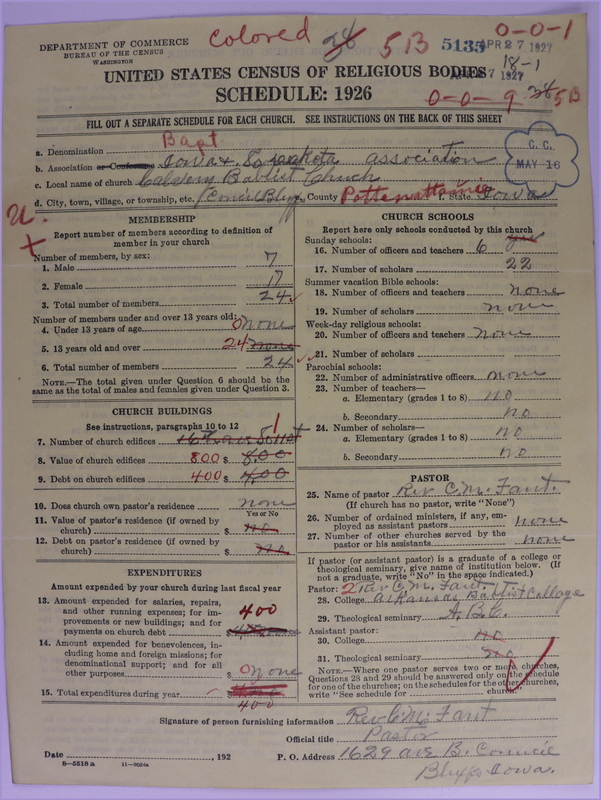 DEPARTMENT OF COMMERCE
BUREAU OF THE CENSUS
WASHINGTON
Colored 28 513 5135 0-0-1
APR 27 1927
18-1
UNITED STATES CENSUS OF RELIGIOUS BODIES
SCHEDULE: 1926
0-0-9 28 5B
FILL OUT A SEPARATE SCHEDULE FOR EACH CHURCH. SEE INSTRUCTIONS ON THE BACK OF THIS SHEET
C. C.
MAY 16
a. Denomination Bapt
b. Association or Conference Iowa & So association
c. Local name of church Calvery Babtist Chuch
d. City, town, village, or township, etc. Concil Bluffs County Pottawattamie f. State Iowa
MEMBERSHIP
Report number of members according to definition of
member in your church
Number of members, by sex:
1. Male 7
2. Female 17
3. Total number of members 24
Number of members under and over 13 years old:
4. Under 13 years of age 0 None
5. 13 years old and over 24 none
6. Total number of members 24
NOTE.—The total given under Question 6 should be
same as the total of males and females given under Question 3.
CHURCH BUILDINGS
See instructions, paragraphs 10 to 12
7. Number of church edifices 1
8. Value of church edifices 800 $ 800
9. Debt on church edifices 400 $ 400
10. Does church own pastor's residence none
Yes or No
11. Value of pastor's residence (if owned by
church) $ no
12. Debt on pastor's residence (if owned by
church) $ no
EXPENDITURES
Amount expended by your church during last fiscal year
13. Amount expended for salaries, repairs,
and other running expenses; for im-
provements or new buildings; and for
payments on church debt 400 $
14. Amount expended for benevolences, in-
cluding home and foreign missions; for
denominational support; and for all
other purposes 0 None
15. Total expenditures during year $
400
CHURCH SCHOOLS
Report here only schools conducted by this church
Sunday schools:
16. Number of officers and teachers 6
17. Number of scholars 22
Summer vacation Bible schools:
18. Number of officers and teachers none
19. Number of scholars none
Week-day religious schools:
20. Number of officers and teachers none
21. Number of scholars
Parochial schools:
22. Number of administrative officers none
23. Number of teachers—
a. Elementary (grades 1 to 8) no
b. Secondary no
24. Number of scholars—
a. Elementary (grades 1 to 8) no
b. Secondary no
PASTOR
25. Name of pastor Rev C.M. Fant.
(If church has no pastor, write "None")
26. Number of ordained ministers, if any, em-
ployed as assistant pastors none
27. Number of other churches served by the
pastor or his assistants none
If pastor (or assistant pastor) is a graduate of a college or
theological seminary, give name of institution below. (If
not a graduate, write "No" in the space indicated.)
Pastor: 2 Rev C.M. Fant
28. College Arkansas Baptist College
29. Theological seminary A.B.C.
Assistant pastor:
30. College no
31. Theological seminary no
NOTE.—Where one pastor serves two or more churches,
Questions 28 and 29 should be answered only on the schedule
for one of the churches; on the schedules for the other churches,
write "See schedule for church."
Signature of person furnishing information Rev C M. Fant
Official title Pastor
Date , 192 P. O. Address 1629 ave B. Council
Bluffs Iowa.
8-5518 a 11-9024a